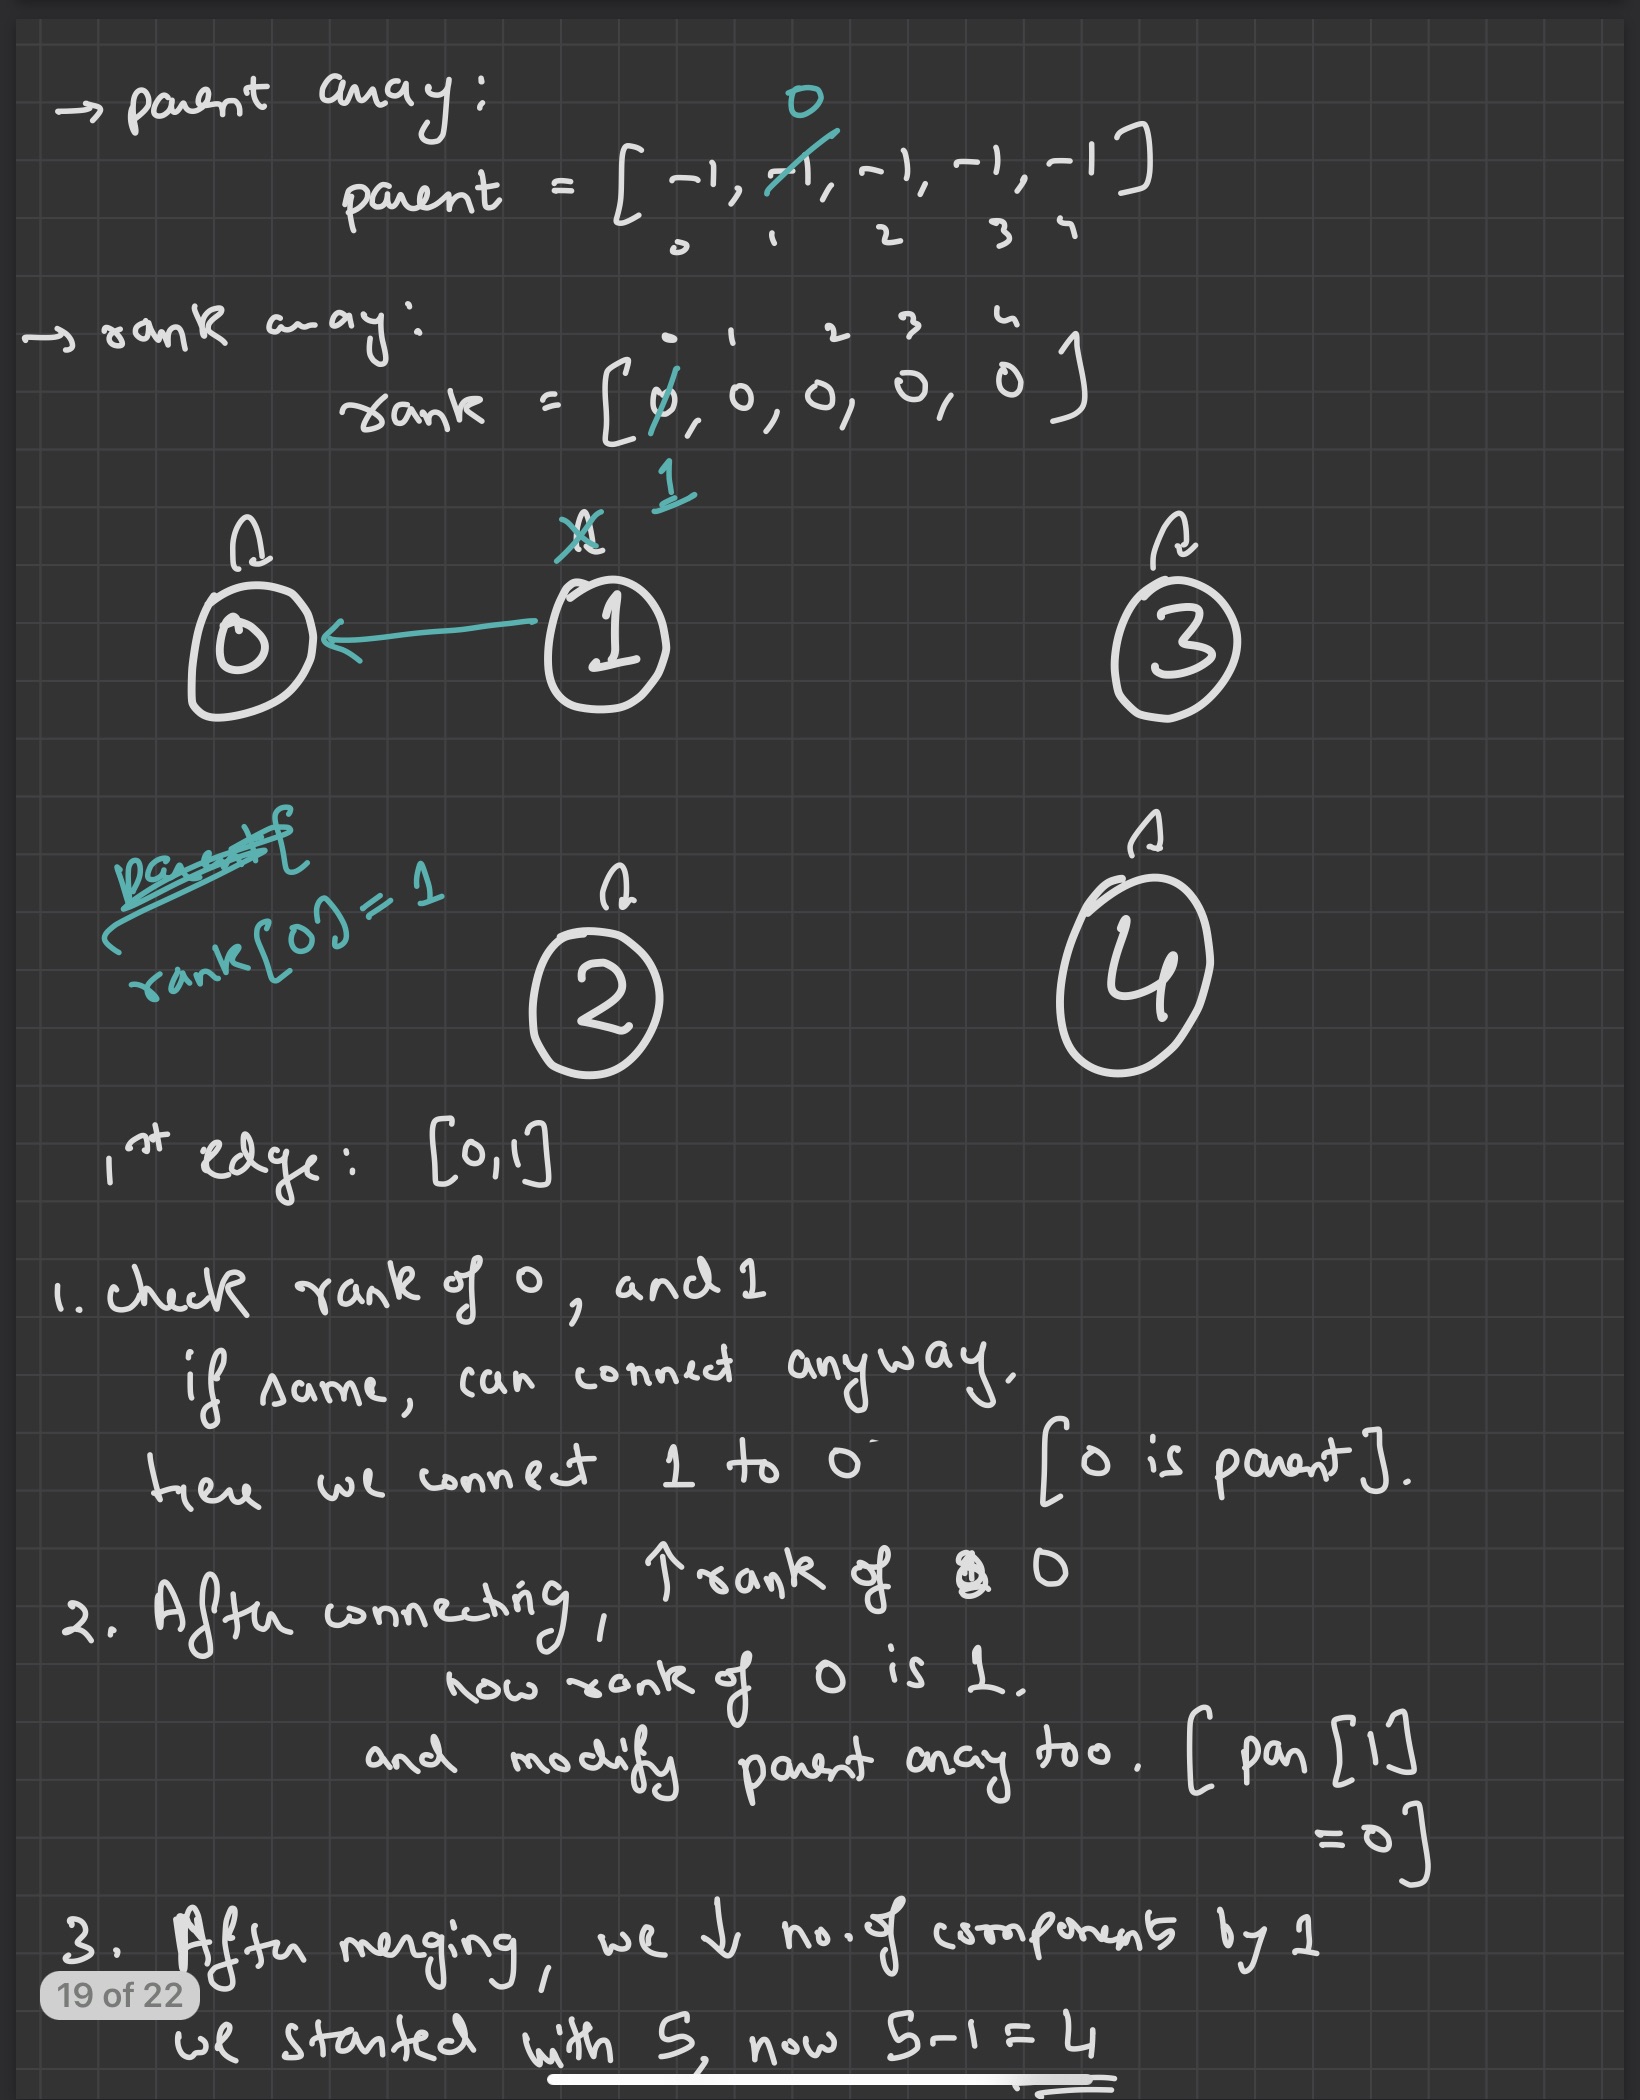 → parent array:
0
parent = [ -1, -1, -1, -1, -1 ]
0 1 2 3 4
→ rank array:
0 1 2 3 4
rank = [ 0, 0, 0, 0, 0 ]
1
0 1 3
rank[0] = 1
2 4
1st edge: [0,1]
1. check rank of 0, and 1
if same, can connect anyway.
Here we connect 1 to 0 [0 is parent].
2. After connecting, ↑ rank of 0
now rank of 0 is 1.
and modify parent array too. [ par [1]
= 0]
3. After merging, we ↓ no. of components by 1
19 of 22
we started with 5, now 5-1 = 4